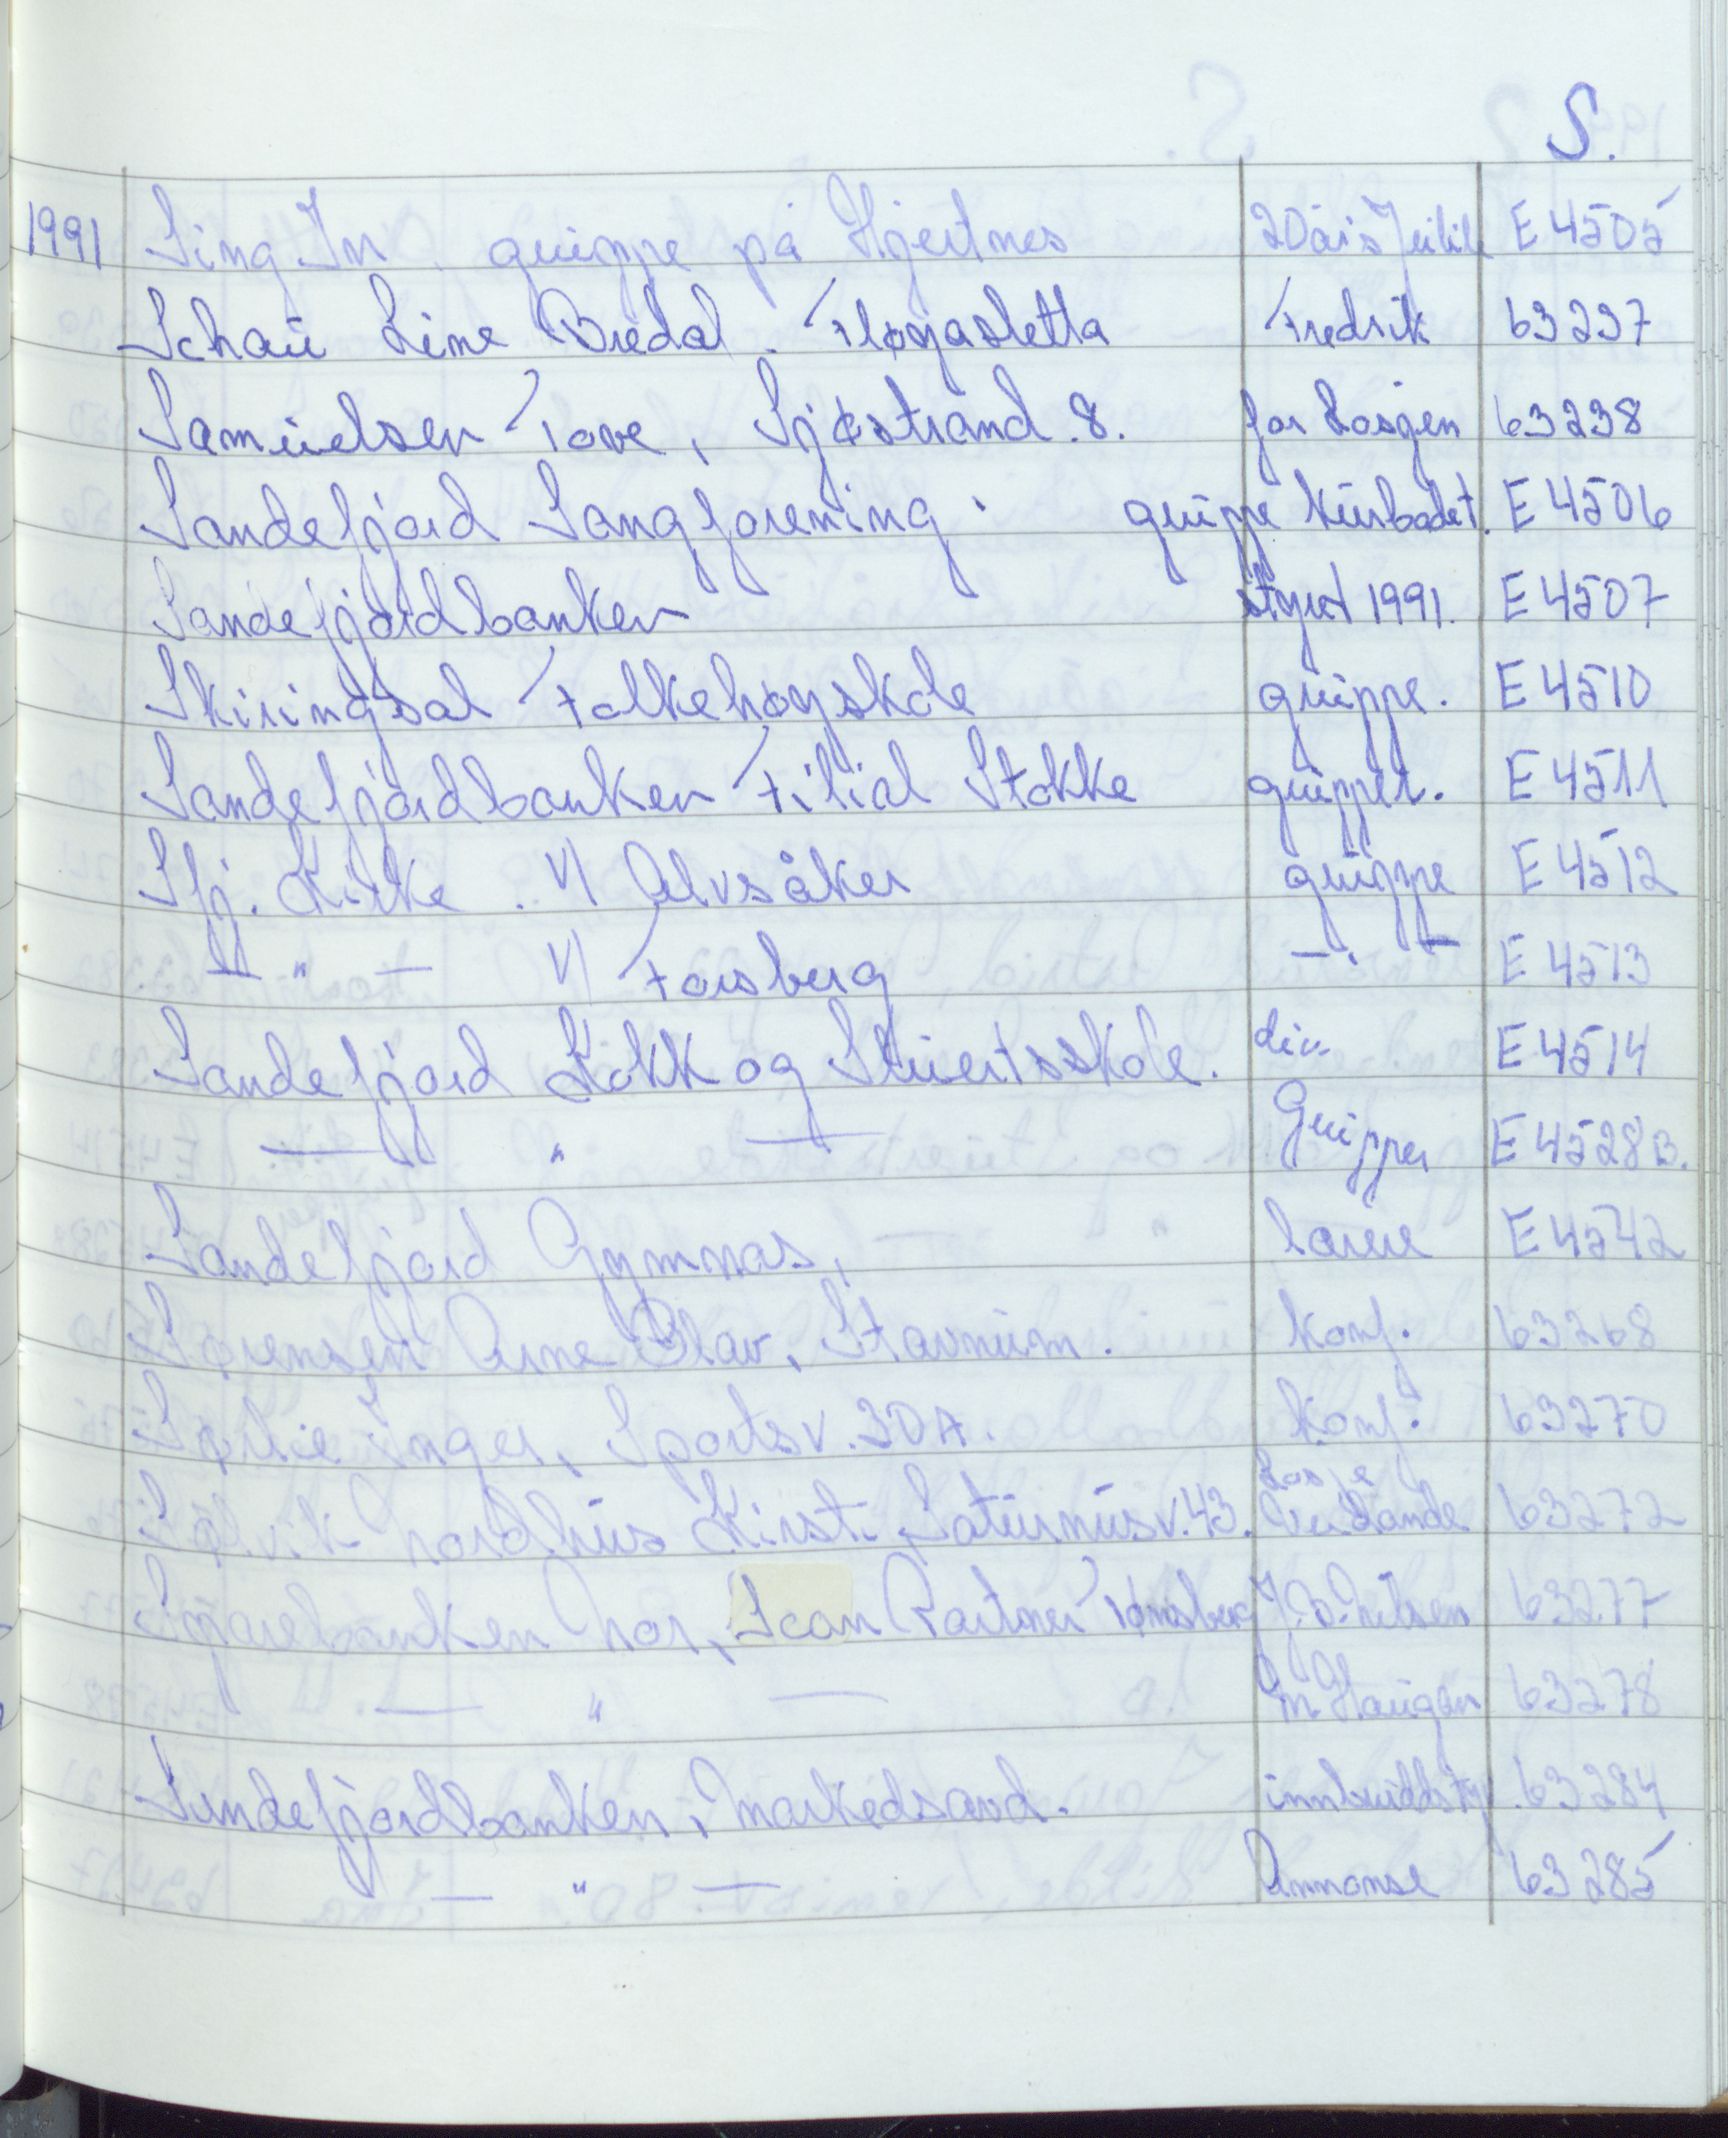 S.
1991 Sing In. gruppe på Hjertnes 20års Jubile E 4505
Schau Line Bredal. Fløyasletta Fredrik 63237
Samuelsen Tove, Sjøstrand. 8. for Losjen 63238
Sandefjord Sangforening. gruppe Kurbadet. E 4506
Sandefjordbanken styret 1991. E 4507
Skiringsal Folkehøyskole gruppe. E 4510
Sandefjordbanken Filial Stokke grupper. E 4511
Sfj. Kirke. V/ Alvsåker gruppe E 4512
— " — V/ Forsberg — . — E 4513
Sandefjord Kokk og Stuertsskole. div. E 4514
— " — Grupper E 4528B.
Sandefjord Gymnas, Lærere E 4542
Sørensen Arne Olav, Stavnum. Konf. 63268
Inger, Sportsv. 30A. Konf. 63270
Sølvik Nordhus Kirsti Saturnusv. 43. Losje 63272
Sparebanken Nor, Scan Partner Tønsberg J. O. Nilsen 63277
— " — M Haugan 63278
Sandefjordbanken, Markedsavd. 63284
— " — Annonse 63285